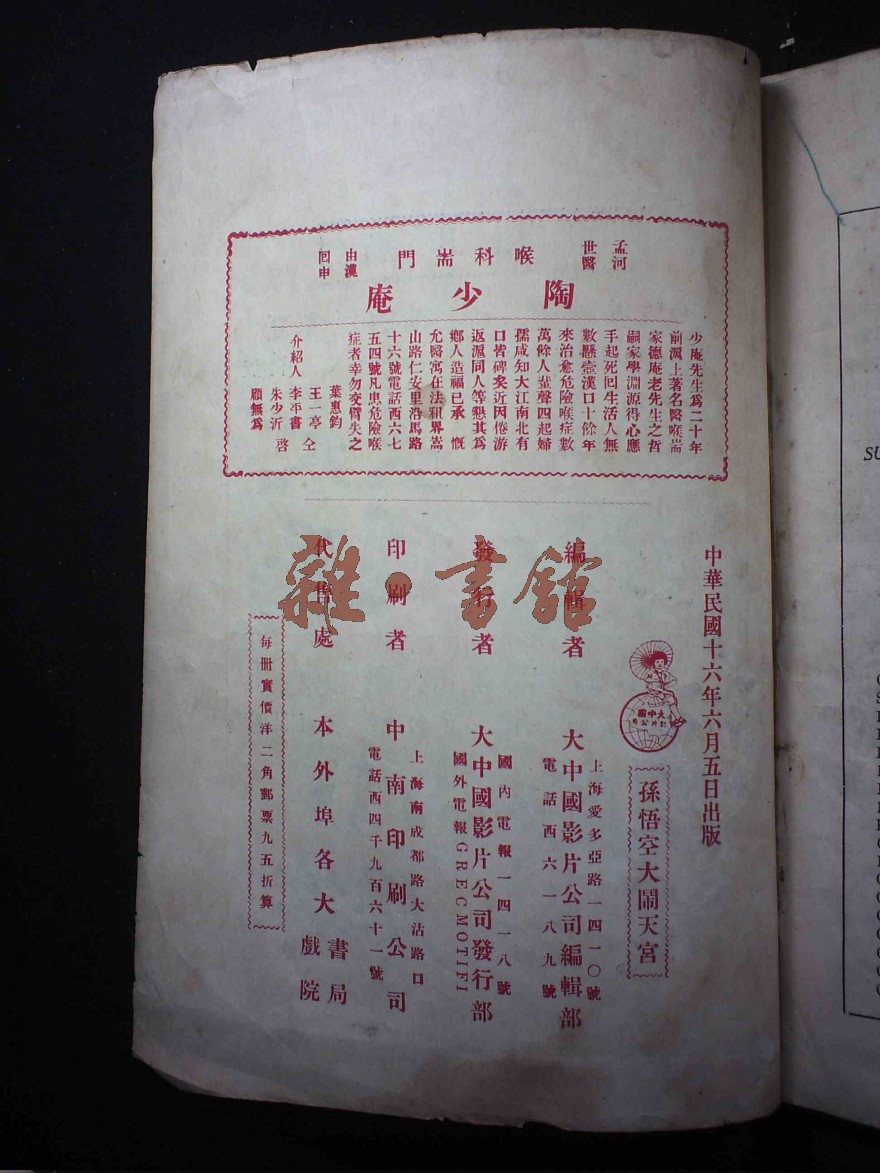 孟河
世醫
喉科耑門
由漢
回申
陶少庵
少庵先生爲二十年
前滬上著名醫喉耑
家德庵老先生之哲
嗣家學淵源得心應
手起死回生活人無
數懸壺漢口十餘年
來治愈危險喉症數
萬餘人蜚聲四起婦
孺咸知大江南北有
口皆碑矣近因倦游
返滬同人等懇其爲
鄉人造福已承 慨
允醫寓在法租界嵩
山路仁安里沿馬路
十六號電話西六七
五四號凡患危險喉
症者幸勿交臂失之
葉惠鈞
王一亭 仝
介紹人 李平書
朱少沂 啓
顧無爲
中華民國十六年六月五日出版
大中國
影片公司
孫悟空大鬧天宮
編輯者
上海愛多亞路一四一〇號
大中國影片公司編輯部
電話西六一八九號
發行者
國內電報一四一八號
大中國影片公司發行部
國外電報GRECMOTIFI
印刷者
上海南成都路大沽路口
中南印刷公司
電話西四千九百六十一號
代售處
本外埠各大
書局
戲院
每冊實價洋二角郵票九五折算
雜·書館
SU